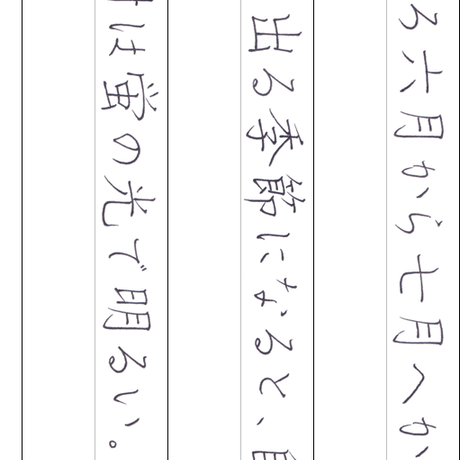 ろ六月から七月へか
出る季節になると、
は蛍の光で明るい。